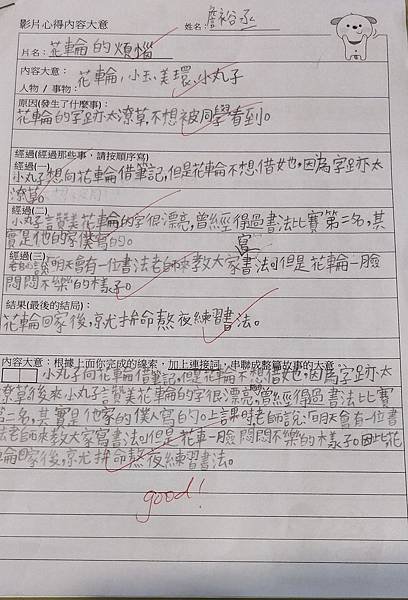 影片心得內容大意 姓名:詹裕丞
片名:花輪的煩惱
內容大意:
人物/事物: 花輪,小玉,美環,小丸子
原因(發生了什麼事):
花輪的字跡亦太潦草,不想被同學看到。
經過(經過那些事,請按順序寫)
經過(一)
小丸子想向花輪借筆記,但是花輪不想借她,因為字跡亦太
潦草。
經過(二)
小丸子讚美花輪的字很漂亮,曾經得過書法比賽第二名,其
實是他的家僕寫的。
經過(三)
老師說:明天會有一位書法老師來教大家寫書法。但是花輪一臉
悶悶不樂的樣子。
結果(最後的結局):
花輪回家後,就拚命熬夜練習書法。
內容大意:根據上面你完成的線索,加上連接詞,串聯成整篇故事的大意
小丸子向花輪借筆記,但是花輪不想借她,因為字跡亦太
潦草後來小丸子讚美花輪的字很漂亮,曾經得過書法比賽
第二名,其實是他家的僕人寫的。上課時老師說:明天會有一位書
法老師來教大家寫書法。但是花輪一臉悶悶不樂的樣子。因此花
輪回家後,就拚命熬夜練習書法。
good!